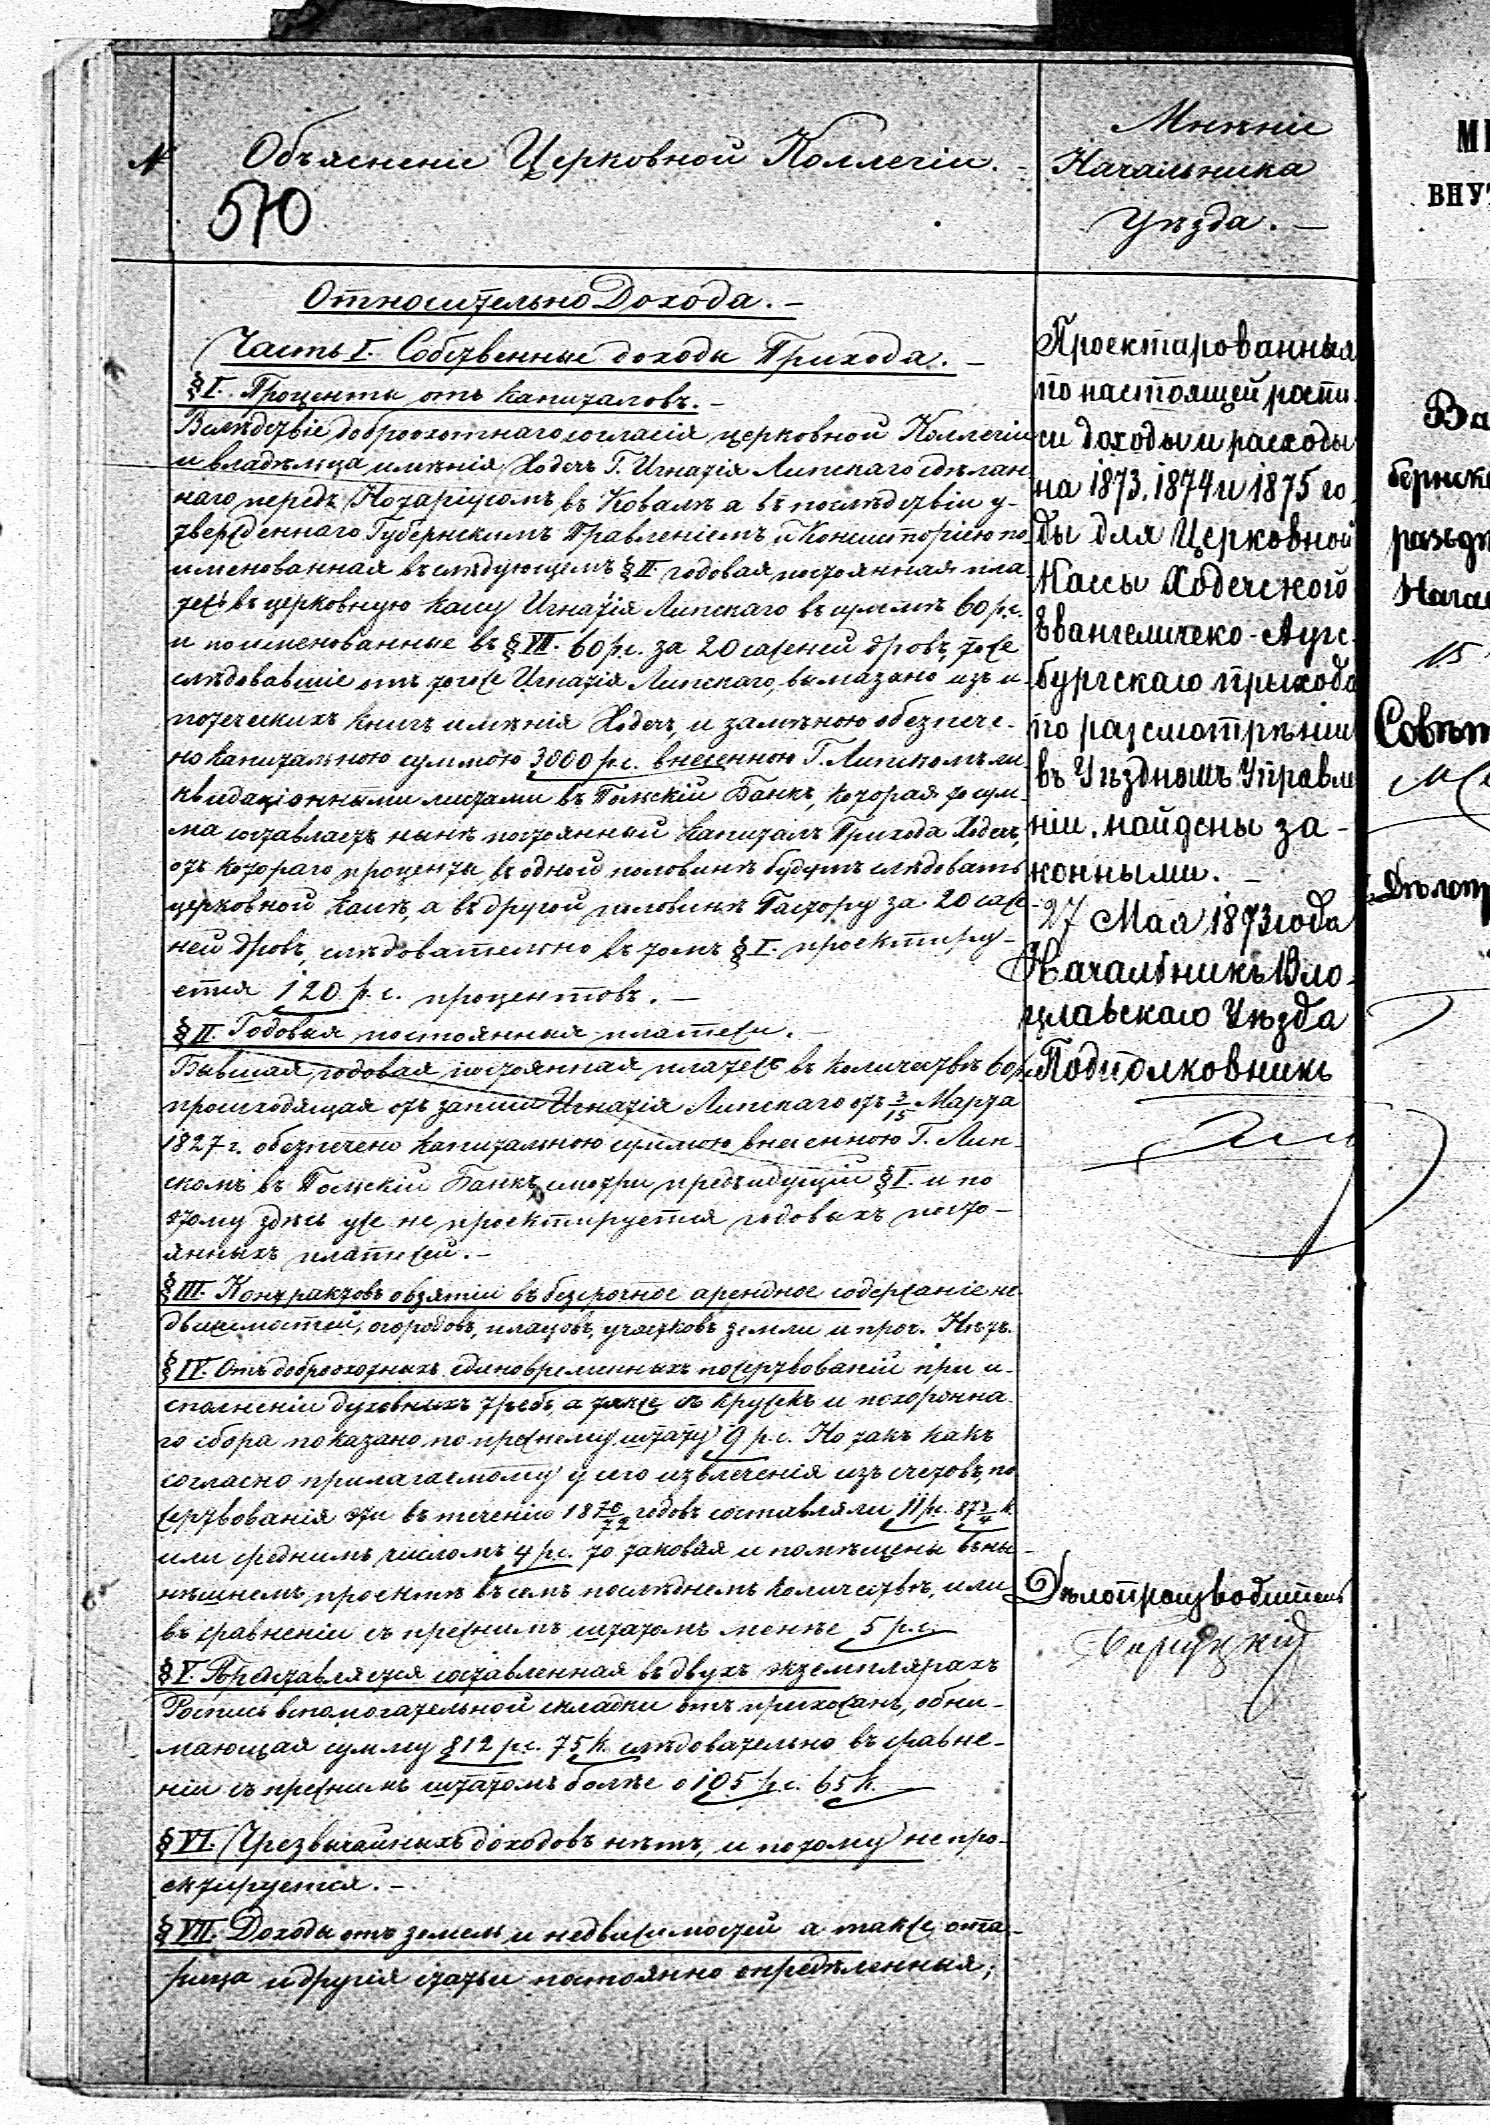 №
Объясненіе Церковной Коллегіи.
510
Мнѣніе
Начальника
Уѣзда. —
Относительно Дохода. —
Часть I. Собственные доходы Прихода. —
§ I. Проценты отъ капиталовъ. —
Вслѣдствіе доброохотнаго согласія церковной Коллегіи
и владѣльца имѣнія Ходечъ Г. Игнатія Липскаго сдѣлан-
наго передъ Нотаріусомъ въ Ковалѣ а въ послѣдствіи у-
твержденнаго Губернскимъ Правленіемъ и Консисторіею по
именованная въ слѣдующемъ § II годовая постоянная пла
тежъ въ церковную кассу Игнатія Липскаго въ суммѣ 60 р.с.
и поименованные въ § VII. 60 р.с. за 20 саженей дровъ, тоже
слѣдовавшіе отъ тогоже Игнатія Липскаго, вымазано изъ и-
потеческихъ книгъ имѣнія Ходечъ, и замѣною обезпече-
но капитальною суммою 3000 р.с. внесенною Г. Липскомъ ли-
квидаціонными листами въ Польскій Банкъ, которая то сум-
ма составляетъ нынѣ постоянный капиталъ Прихода Ходечъ,
отъ котораго проценты въ одной половинѣ будутъ слѣдовать
церковной кассѣ, а въ другой половинѣ Пастору за 20 саже
ней дровъ, слѣдовательно въ томъ § I. проектиру-
ется 120 р. с. процентовъ. —
§ II. Годовыя постоянныя платежи. —
Бывшая годовая постоянная платежъ въ количествѣ 60 р.
происходящая отъ записи Игнатія Липскаго отъ 3/15 Марта
1827 г. обезпечено капитальною суммою внесенною Г. Лип-
скомъ въ Польскій Банкъ, смотри предъидущій § I. и по
этому здѣсь уже не проектируется годовыхъ посто-
янныхъ платежей. —
§ III. Контрактовъ о взятіи въ безсрочное арендное содержаніе не
движимостей, огородовъ, плацовъ, участковъ земли и проч. Нѣтъ.
§ IV. Отъ доброохотныхъ единовременныхъ пожертвованій при и-
сполненіи духовныхъ требъ, а также въ кружкѣ и похоронна-
го сбора показано по прежнему штату 9 р. с. Но такъ какъ
согласно прилагаемому у сего извлеченія изъ счетовъ, по
жертвованія эти въ теченіе 1870/72 годовъ составляли 11 р. 87 3/4 к.
или среднимъ числомъ 4 р.с. то таковыя и помѣщены въ ны
нѣшнемъ проектѣ въ семъ послѣднемъ количествѣ, или
въ сравненіи съ прежнимъ штатомъ менѣе 5 р.с.
§ V. Представляется составленная въ двухъ экземплярахъ
Роспись вспомогательной складки отъ прихожанъ, обни-
мающая сумму 812 р.с. 75 к. слѣдовательно въ сравне-
ніи съ прежнимъ штатомъ болѣе о 105 р.с. 65 к.
§ VI. Чрезвычайныхъ доходовъ нѣтъ, и потому не про-
ектируется. —
§ VII. Доходы отъ земель и недвижимостей а также
и другія статьи постоянно опредѣленныя;
Проектированныя
по настоящей роспи-
си доходы и расходы
на 1873, 1874 и 1875 го-
ды для Церковной
Кассы Ходечского
Евангелическо-Аугс-
бургскаго прихода
по разсмотрѣніи
въ Уѣздномъ Управле
ніи, найдены за-
конными. —
27 Мая 1873 года
Начальникъ Вло-
цлавскаго Уѣзда
Подполковникъ
Дѣлопроизводитель
МИ
ВНУТ
Ва
бернск
разсдѣ
Нача
15
Совѣт
Дѣлопр